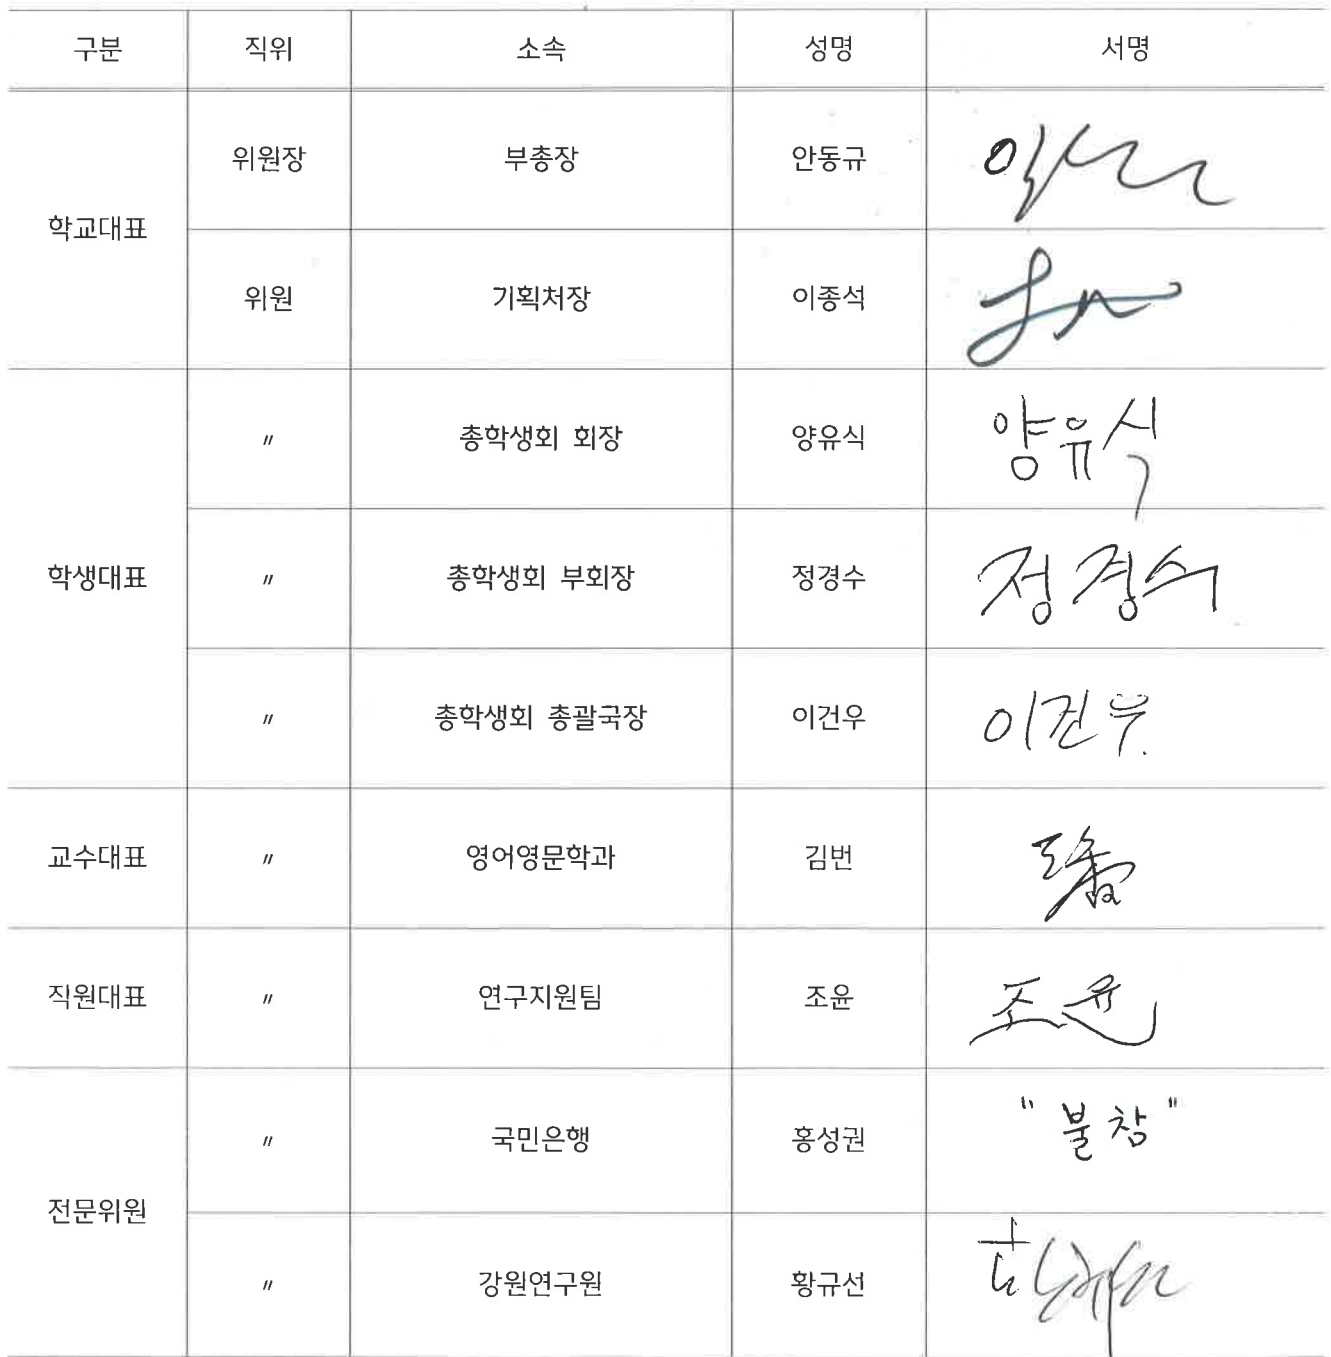 구분 직위 소속 성명 서명
위원장 부총장 안동규
학교대표
위원 기획처장 이종석
〃 총학생회 회장 양유식 양유식
학생대표 〃 총학생회 부회장 정경수 정경수
〃 총학생회 총괄국장 이건우 이건우
교수대표 〃 영어영문학과 김번
직원대표 〃 연구지원팀 조윤 조윤
〃 국민은행 홍성권 "불참"
전문위원
〃 강원연구원 황규선